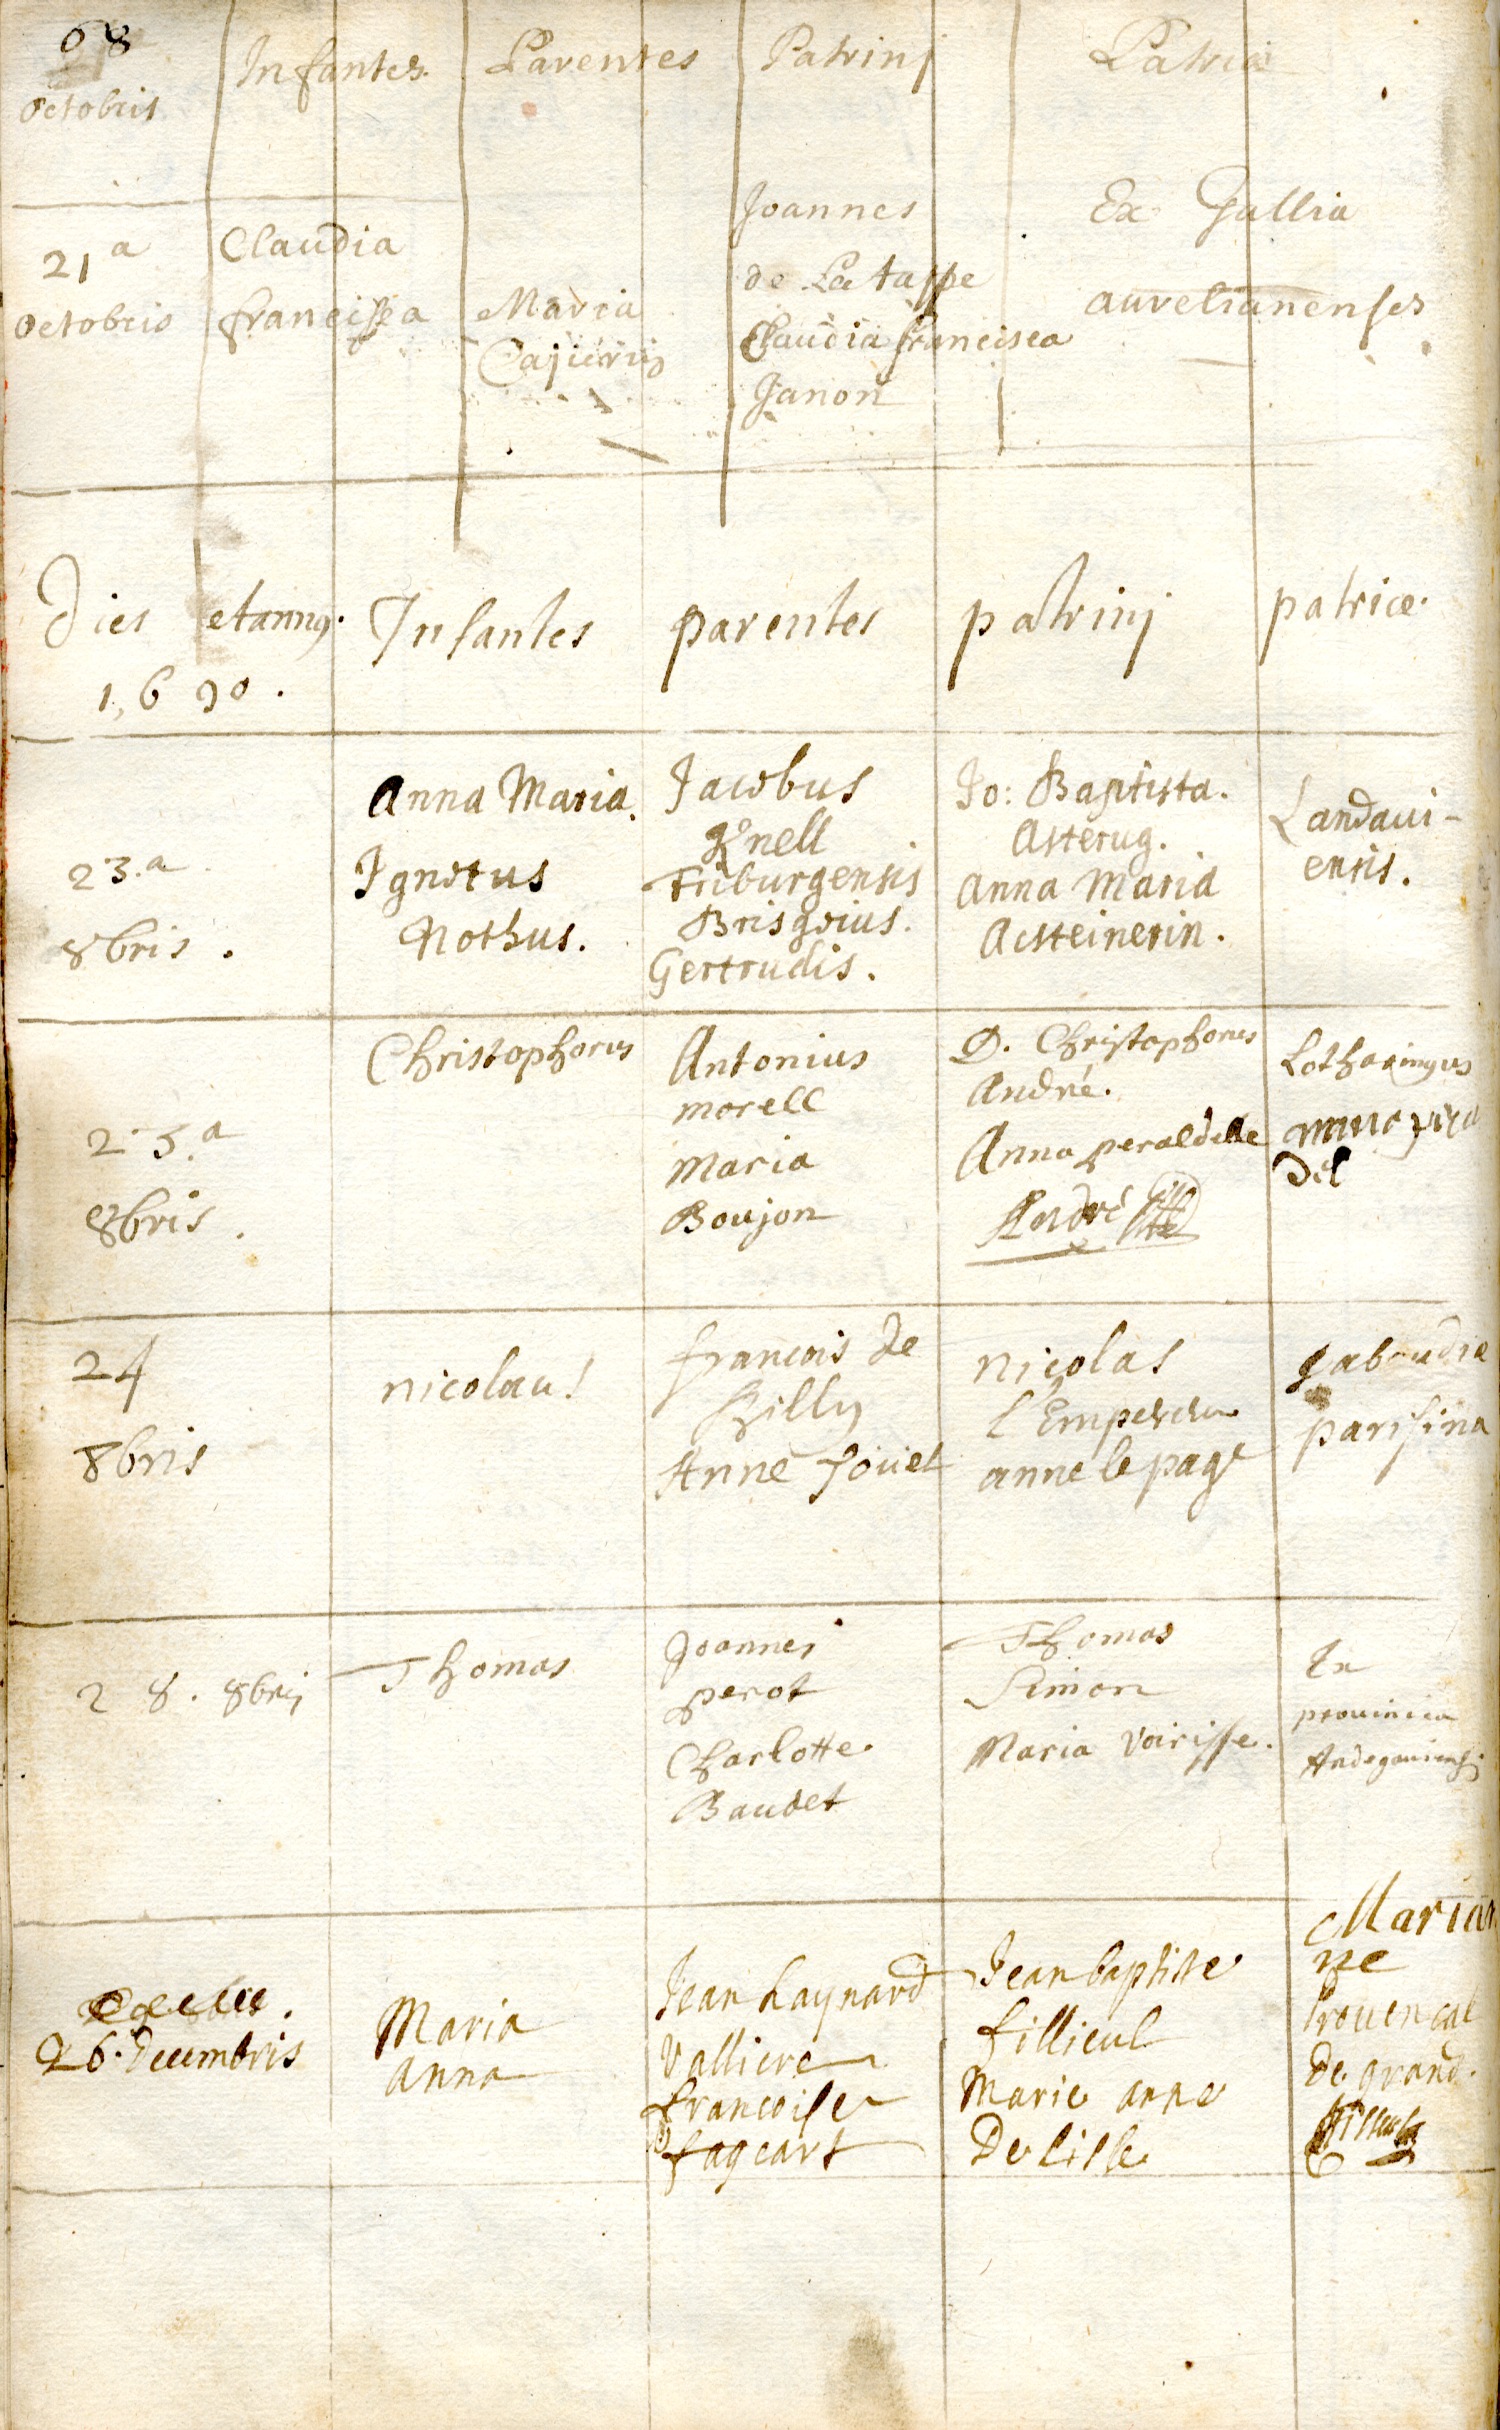 68
Octobris
Infantes
Parentes
Patrinj
Patria
21 a
Octobris
Claudia
francissea
Maria
Joannes
de La tasse
Claudia francisca
Janon
Ex Gallia
aurelianenses
Dies et annus.
1,690.
Infantes
parentes
patrinj
patriæ.
23.a
8bris.
Anna Maria.
Ignotus
Nothus.
Jacobus
Knell
Friburgensis
Brisgoius.
Gertrudis.
Jo: Baptista.
Asterug.
Anna Maria
Acsteinerin.
Landaui-
ensis.
23.a
8bris.
Christophorus
Antonius
morell
Maria
Boujon
D. Christophorus
André.
Anna peraldelle
André
Lotharingus
24
8bris
nicolaus
francois de
Hilly
Anne Jouet
Nicolas
l'Empereur
anne le page
parisina
28. 8bris
Thomas
Joannes
perot
Charlotte
Baudet
Thomas
Simon
Maria Voirisse.
In
prouincia
Andegauiensi
26. Decembris
Maria
anna
Jean Laynard
Valliere
francoise
fageart
Jean baptiste
fillieul
Marie anne
De lisle
Marian
ne
Prouencal
De grand.